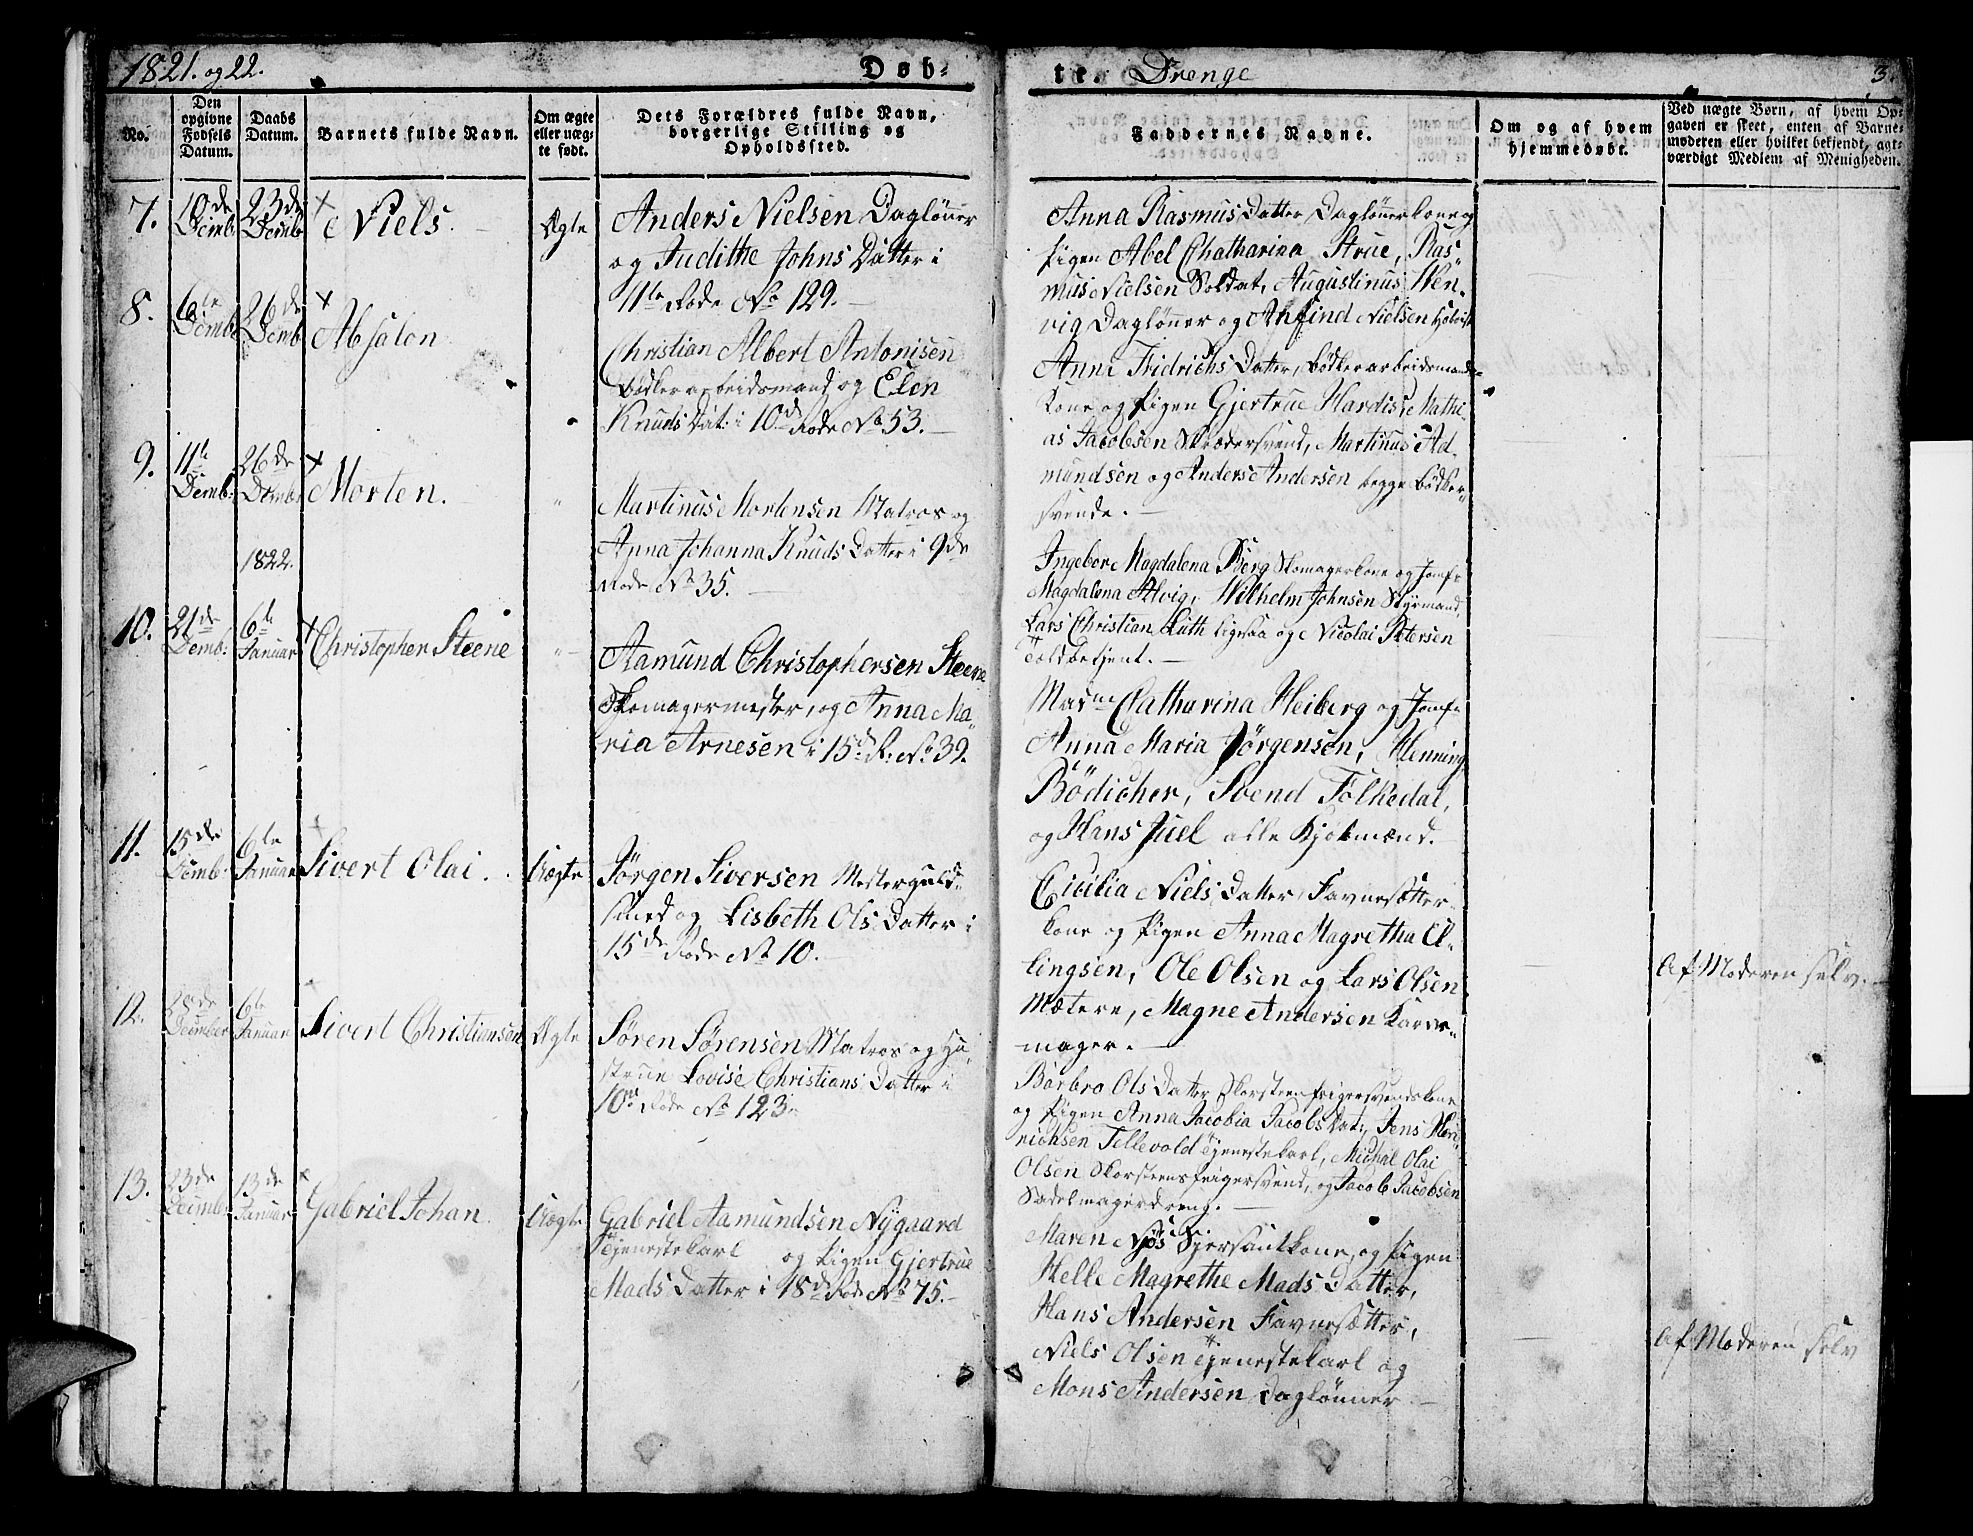 1821. og 22.
Døb-
te. Drenge
3.
No.
Den
opgivne
Fødsels
Datum.
Daabs
Datum.
Barnets fulde Navn.
Om ægte
eller uæg-
te født.
Dets Forældres fulde Navn,
borgerlige Stilling og
Opholdssted.
Faddernes Navne.
Om og af hvem
hjemmedøbt.
Ved uægte Børn, af hvem Op-
gaven er skeet, enten af Barne-
moderen eller hvilket bekjendt, agt-
værdigt Medlem af Menigheden.
7.
10de
Decemb:
23de
Decemb:
Niels.
Ægte
Anders Nielsen Daglønner
og Judithe Johns Datter i
11te Rode No 129.
Anna Rasmus Datter Daglønnerkone og
Pigen Abel Chatharina Strue, Ras-
mus Nielsen Soldat, Augustinus Wen-
vig Dagløner og Anfind Nielsen
8.
6te
Decemb:
26de
Decemb:
Absalon
Christian Albert Antonisen
Bødker arbeidsmand og Elen
Knuds Dat: i 10de Rode No 53.
Anna Fridrichs Datter, Bødker arbeidsmands
Kone og Pigen Gjertrue Hardis, Mathi-
as Jacobsen Skrædersvend, Martinus Ad-
mundsen og Anders Andersen begge Bødker-
svende.
9.
11te
Decemb:
26de
Decemb:
Morten.
Martinus Mortensen Matros og
Anna Johanna Knuds Datter i 9de
Rode No 35.
Ingebor Magdalena Berg Skomagerkone og Jomfr
Magdalena Alvig, Wilhelm Johnsen Styrmand,
Lars Christian Luth ligesaa og Nicolai Petersen
Toldbetjent.
1822.
10.
21de
Decemb:
6te
Januar
Christopher Steene
Aamund Christophersen Steene
Skomagermester, og Anna Ma-
ria Arnesen i 15de R: No 39.
Madme Catharina Heiberg og Jomfr
Anna Maria Jørgensen, Henning
Bödicher, Svend Folkedal,
og Hans Juel alle Kjøbmænd.
11.
15de
Decemb:
6te
Januar
Sivert Olai.
Uægte
Jørgen Siversen Mesterguld-
smed og Lisbeth Ols Datter i
15de Rode No 10.
Cicilia Niels Datter Favnesætter-
kone og Pigen Anna Magretha El-
lingsen, Ole Olsen og Lars Olsen
Mætere, Magne Andersen Kareet-
mager.
Af Moderen selv.
12.
28de
December
6te
Januar
Sivert Christiansen
Ægte
Søren Sørensen Matros og Hu-
strue Lovise Christians Datter i
10de Rode No 123.
Barbro Ols Datter Skorsteensfeigersvendskone
og Pigen Anna Jacobia Jacobs Dat:, Jens Hen-
richsen Tellevold Tjenestekarl, Michal Olai
Olsen Skorsteensfeigersvend, og Jacob Jacobsen
Sadelmagerdreng.
13.
23de
Decembr
13de
Januar
Gabriel Johan
Uægte
Gabriel Aamundsen Nygaard
Tjenestekarl og Pigen Gjertrue
Mads Datter i 18de Rode No 75.
Maren Njøs Sjersantkone, og Pigen
Helle Magrethe Mads Datter,
Hans Andersen Favnesætter,
Niels Olsen Tjenestekarl og
Mons Andersen Daglønner
Af Moderen selv